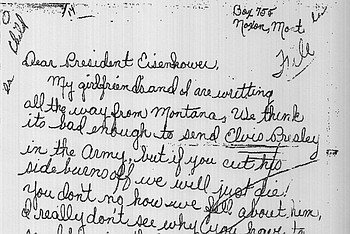 Box 755
Noxon, Mont
Dear President Eisenhower,
My girlfriend's and I are writting
all the way from Montana, We think
its bad enough to send Elvis Presley
in the Army, but if you cut his
side burns off we will just die!
You don't no how we fell about him,
I really don't see why you have to